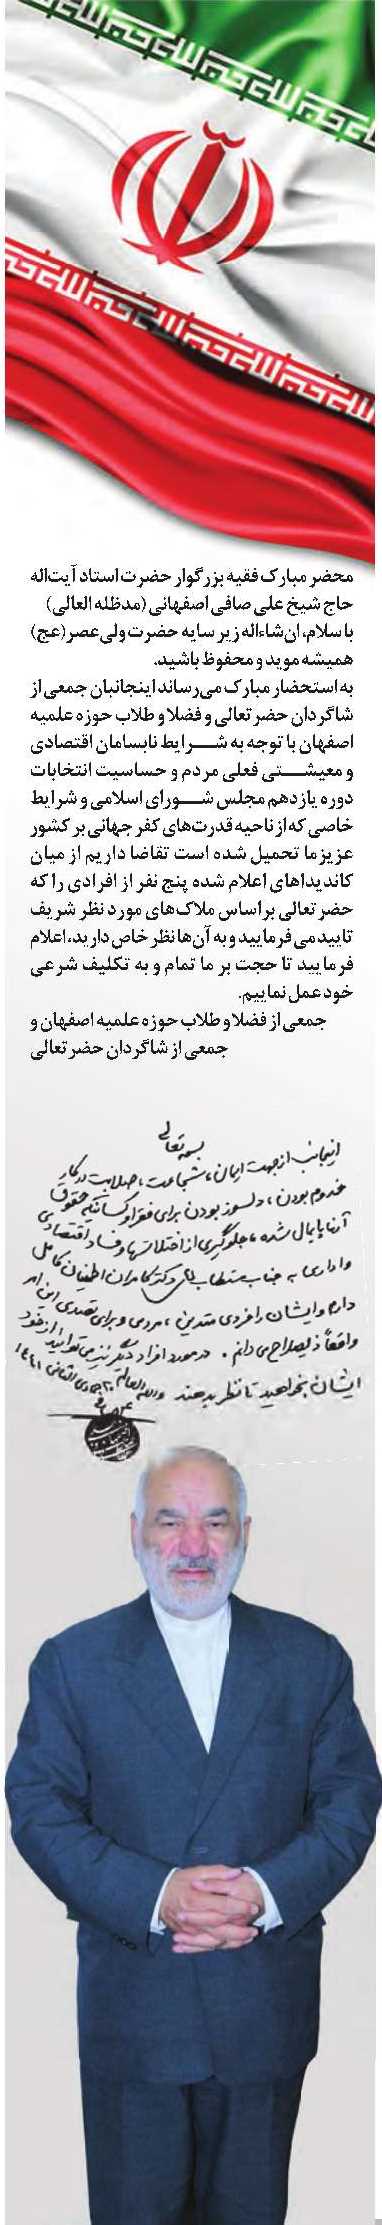 محضر مبارک فقیه بزرگوار حضرت استاد آیت‌اله
حاج شیخ علی صافی اصفهانی (مدظله العالی)
با سلام، ان‌شاءاله زیر سایه حضرت ولی‌عصر(عج)
همیشه موید و محفوظ باشید.
به استحضار مبارک می‌رساند اینجانبان جمعی از
شاگردان حضرتعالی و فضلا و طلاب حوزه علمیه
اصفهان با توجه به شرایط نابسامان اقتصادی
و معیشتی فعلی مردم و حساسیت انتخابات
دوره یازدهم مجلس شورای اسلامی و شرایط
خاصی که از ناحیه قدرت‌های کفر جهانی بر کشور
عزیز ما تحمیل شده است تقاضا داریم از میان
کاندیداهای اعلام شده پنج نفر از افرادی را که
حضرتعالی بر اساس ملاک‌های مورد نظر شریف
تایید می فرمایید و به آن‌ها نظر خاص دارید، اعلام
فرمایید تا حجت بر ما تمام و به تکلیف شرعی
خود عمل نماییم.
جمعی از فضلا و طلاب حوزه علمیه اصفهان و
جمعی از شاگردان حضرتعالی
بسمه تعالی
اینجانب از جهت ایمان، شجاعت، صلابت در کار
خدوم بودن، دلسوز بودن برای فقرا و کسانیکه حقوق
آنها پایمال شده، جلوگیری از اختلاسها و فساد اقتصادی
و اداری به جناب مستطاب دکتر کامران اطمینان کامل
دارم و ایشان را فردی متدین، مردمی و برای تصدی این امر
واقعاً ذیصلاح می دانم. در مورد افراد دیگر نیز می توانید از خود
ایشان بخواهید تا نظر بدهند والله العالم ۲۰ جمادی الثانی ۱۴۴۱